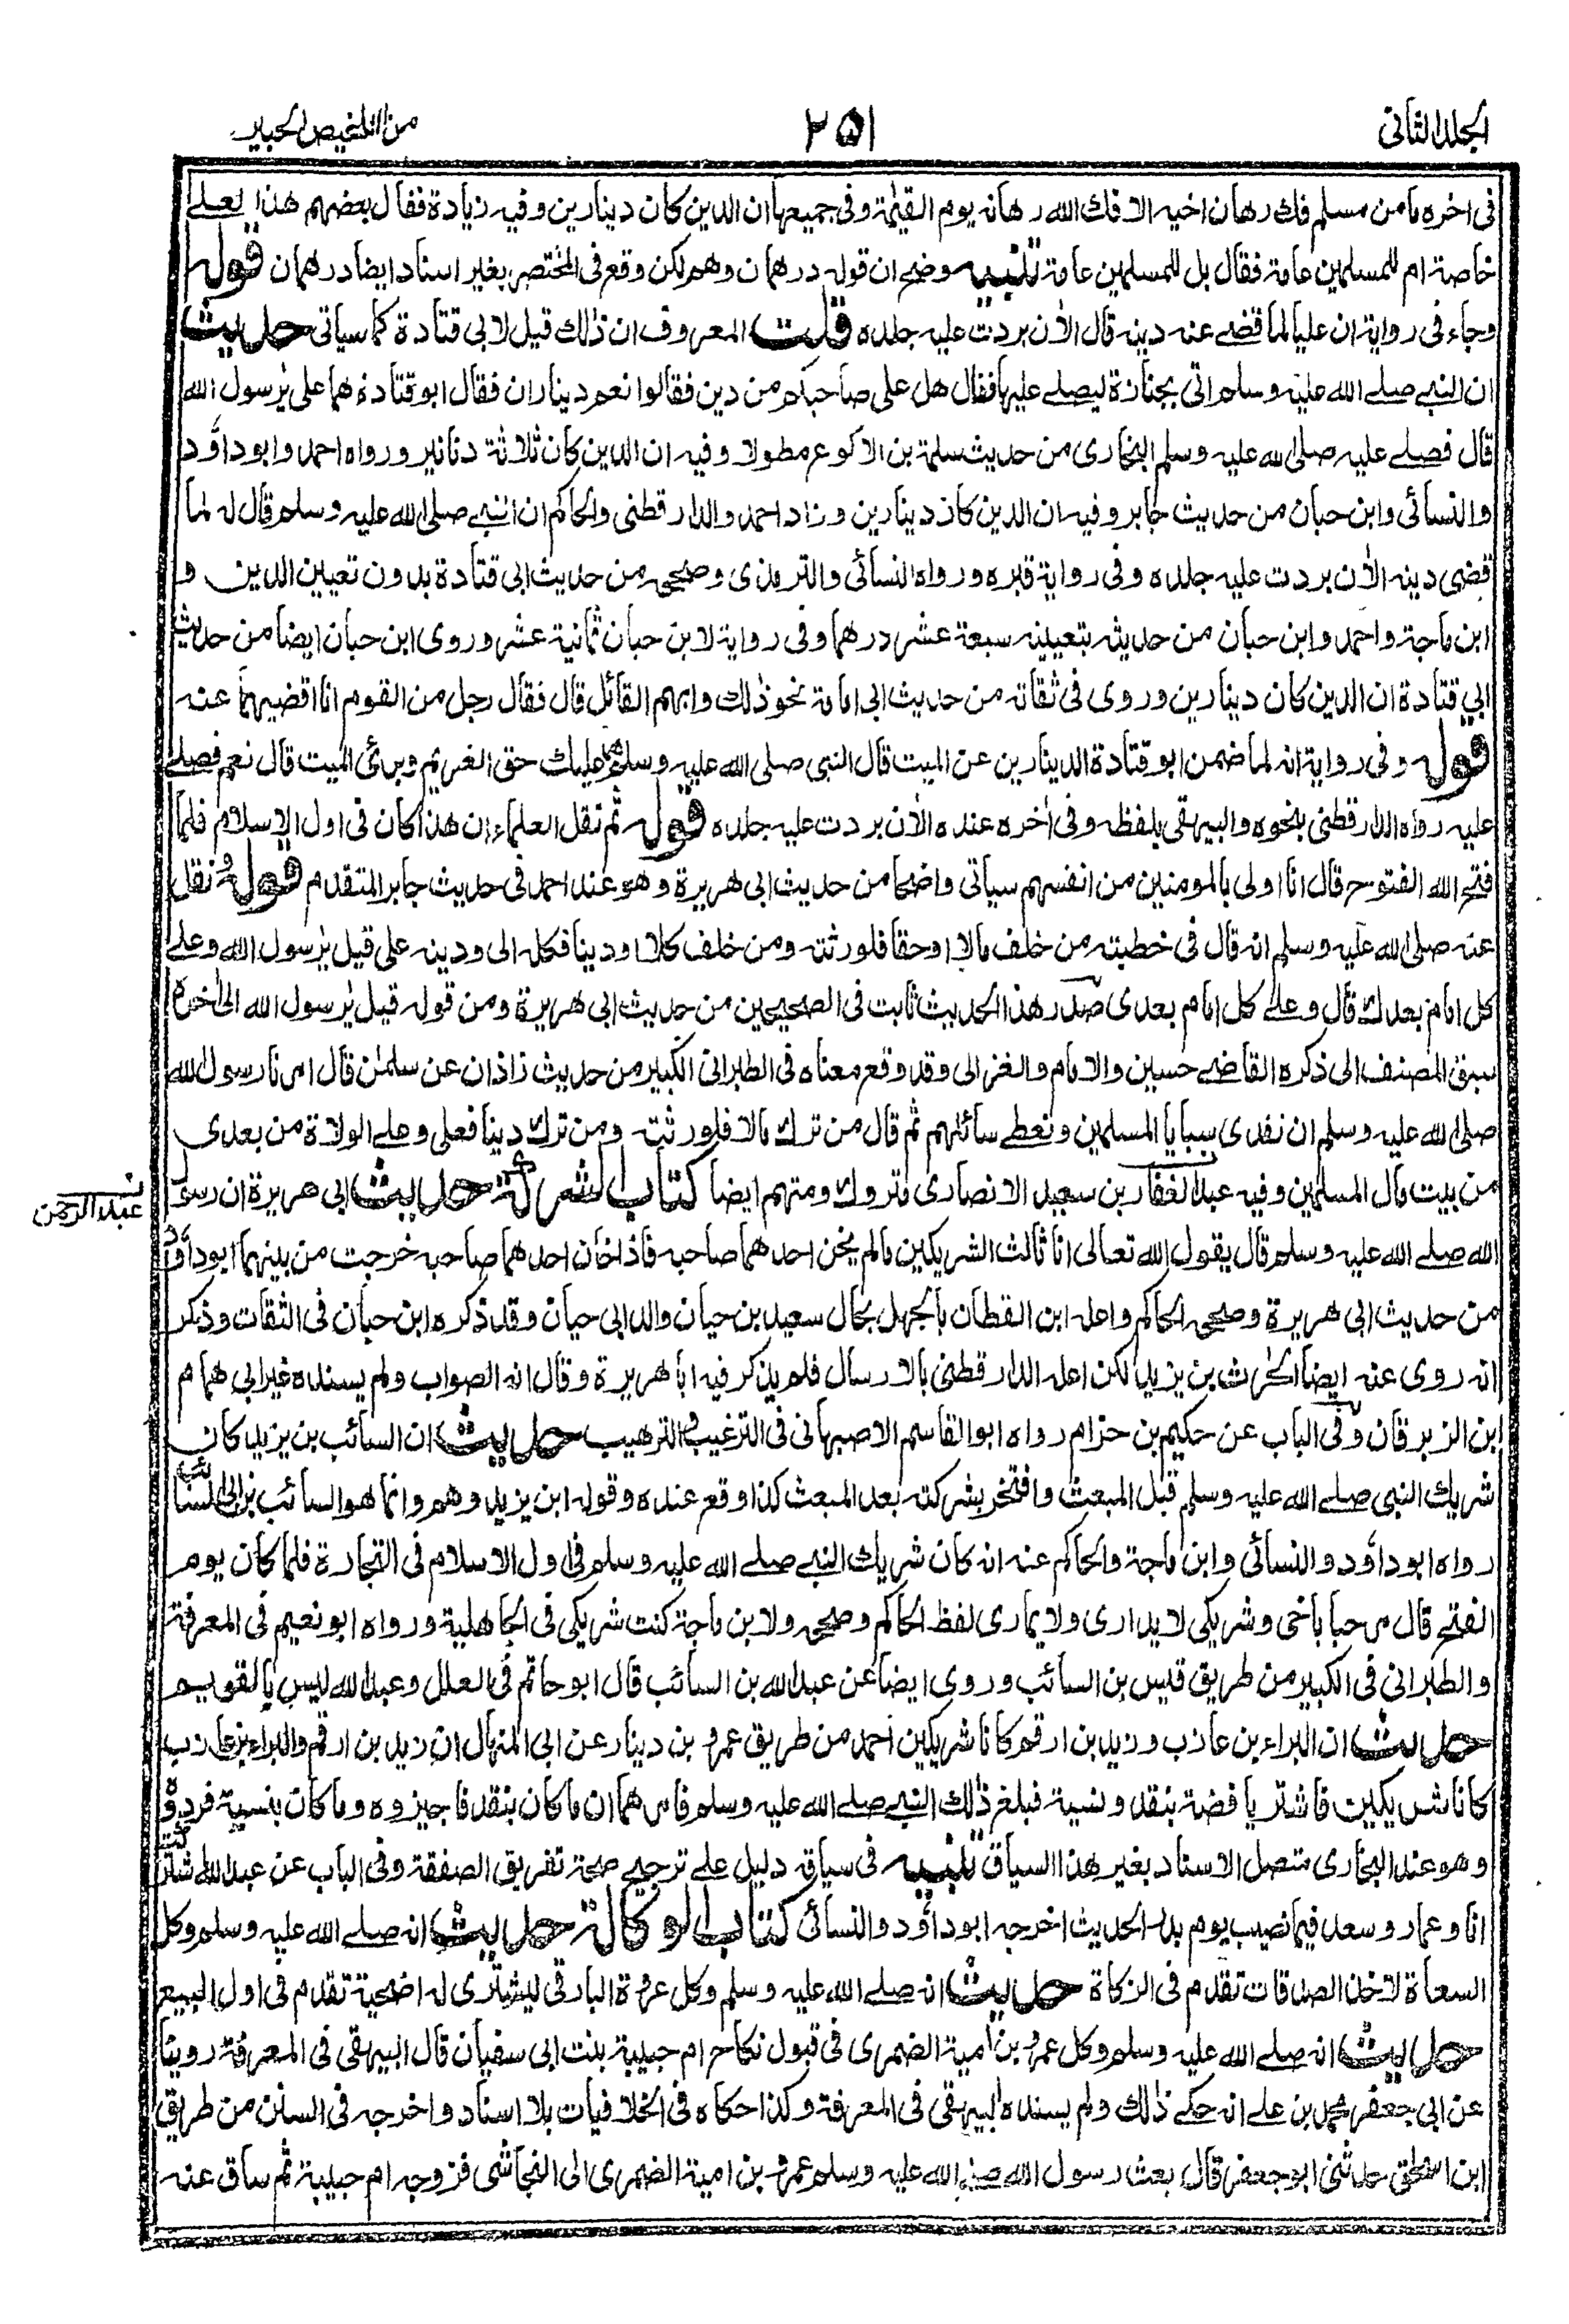 الجلد الثانى
٢٥١
من التلخيص الحبير
فى اخره ما من مسلم فك رهان اخيه الا فك الله رهانه يوم القيٰمة وفى جميعها ان الدين كان دينارين وفيه زيادة فقال بعضهم هذا لعلے
خاصة ام للمسلمين عامة فقال بل للمسلمين عامة تنبيه وضح ان قوله درهمان وهم لكن وقع فى المختصر بغير اسناد ايضا درهمان قوله
وجاء فى رواية ان عليا لما قضے عنه دينه قال الاٰن بردت عليه جلده قلت المعروف ان ذٰلك قيل لابى قتادة كما سياتى حديث
ان النبے صلے الله عليه وسلم اتى بجنازة ليصلے عليها فقال هل على صاحبكم من دين فقالوا نعم ديناران فقال ابو قتادة هما على يٰرسول الله
قال فصلے عليه صلى الله عليه وسلم البخارى من حديث سلمة بن الاكوع مطولا وفيه ان الدين كان ثلاثة دنانير ورواه احمد وابو داؤد
والنسائى وابن حبان من حديث جابر وفيه ان الدين كان دينارين وزاد احمد والدارقطنى والحاكم ان النبے صلى الله عليه وسلم قال له لما
قضى دينه الاٰن بردت عليه جلده وفى رواية قبره ورواه النسائى والترمذى وصححه من حديث ابى قتادة بدون تعيين الدين و
ابن ماجة واحمد وابن حبان من حديثه بتعيينه سبعة عشر درهما وفى رواية لابن حبان ثمانية عشر وروى ابن حبان ايضا من حديث
ابي قتادة ان الدين كان دينارين وروى فى ثقاته من حديث ابى امامة نحو ذٰلك وابهم القائل قال فقال رجل من القوم انا اقضيهما عنه
قوله وفى رواية انه لما ضمن ابو قتادة الدينارين عن الميت قال النبي صلى الله عليه وسلم هما عليك حق الغريم وبرئ الميت قال نعم فصلے
عليه رواه الدارقطنى بنحوه والبيهقى بلفظه وفى اٰخره عنده الاٰن بردت عليه جلده قوله ثم نقل العلماء ان هذا كان فى اول الاسلام فلما
فتح الله الفتوح قال انا اولى بالمومنين من انفسهم سياتى واضحا من حديث ابى هريرة وهو عند احمد فى حديث جابر المتقدم قوله نقل
عنه صلى الله عليه وسلم انه قال فى خطبته من خلف مالا اوحقا فلورثته ومن خلف كلا اودينا فكله الى ودينه على قيل يٰرسول الله وعلے
كل امام بعدك قال وعلے كل امام بعدى صدر هذا الحديث ثابت فى الصحيحين من حديث ابى هريرة ومن قوله قيل يٰرسول الله الى اٰخره
سبق المصنف الى ذكره القاضے حسين والامام والغزالى وقد وقع معناه فى الطبرانى الكبير من حديث زاذان عن سلمٰن قال امرنا رسول الله
صلى الله عليه وسلم ان نفدى سبايا المسلمين ونعطے سائلهم ثم قال من ترك مالا فلورثته ومن ترك دينا فعلى وعلے الولاة من بعدى
من بيت مال المسلمين وفيه عبد الغفار بن سعيد الانصارى متروك ومتهم ايضا كتاب الشركة حديث ابى هريرة ان رسول
عبد الرحمن
الله صلے الله عليه وسلم قال يقول الله تعالى انا ثالث الشريكين مالم يخن احدهما صاحبه فاذا خان احدهما صاحبه خرجت من بينهما ابو داؤد
من حديث ابى هريرة وصححه الحاكم واعله ابن القطان بالجهل بحال سعيد بن حيان والد ابى حيان وقد ذكره ابن حبان فى الثقات وذكر
انه روى عنه ايضا الحٰرث بن يزيد لكن اعله الدارقطنى بالارسال فلم يذكر فيه ابا هريرة وقال انه الصواب ولم يسنده غير ابي همام
ابن الزبرقان وفى الباب عن حكيم بن حزام رواه ابو القاسم الاصبهانى فى الترغيب والترهيب حديث ان السائب بن يزيد كان
شريك النبى صلے الله عليه وسلم قبل المبعث وافتخر بشركته بعد المبعث كذا وقع عنده وقوله ابن يزيد وهم وانما هو السائب بن ابى السائب
رواه ابو داؤد والنسائى وابن ماجة والحاكم عنه انه كان شريك النبے صلے الله عليه وسلم فى اول الاسلام فى التجارة فلما كان يوم
الفتح قال مرحبا باخى وشريكى لايدارى ولا يمارى لفظ الحاكم وصححه ولابن ماجة كنت شريكى فى الجاهلية ورواه ابو نعيم فى المعرفة
والطبرانى فى الكبير من طريق قيس بن السائب وروى ايضا عن عبد الله بن السائب قال ابو حاتم فى العلل وعبد الله ليس بالقويم
حديث ان البراء بن عازب وزيد بن ارقم كانا شريكين احمد من طريق عمرو بن دينار عن ابى المنهال ان زيد بن ارقم والبراء بن عازب
كانا شريكين فاشتريا فضة بنقد ونسية فبلغ ذٰلك النبے صلے الله عليه وسلم فامرهما ان ما كان بنقد فاجيزوه وما كان بنسية فردوه
وهو عند البخارى متصل الاسناد بغير هذا السياق تنبيه فى سياقه دليل علے ترجيح صحة تفريق الصفقة وفى الباب عن عبد الله اشتركت
انا وعمار وسعد فيما نصيب يوم بدر الحديث اخرجه ابو داؤد والنسائى كتاب الوكالة حديث انه صلے الله عليه وسلم وكل
السعاة لاخذ الصدقات تقدم فى الزكاة حديث انه صلے الله عليه وسلم وكل عروة البارقى ليشترى له اضحية تقدم فى اول البيع
حديث انه صلے الله عليه وسلم وكل عمرو بن امية الضمرى فى قبول نكاح ام حبيبة بنت ابى سفيان قال البيهقى فى المعرفة روينا
عن ابى جعفر محمد بن علے انه حكے ذٰلك ولم يسنده البيهقى فى المعرفة وكذا حكاه فى الخلافيات بلا اسناد واخرجه فى السنن من طريق
ابن اسحٰق حدثنى ابو جعفر قال بعث رسول الله صلے الله عليه وسلم عمرو بن امية الضمرى الى النجاشى فزوجه ام حبيبة ثم ساق عنه